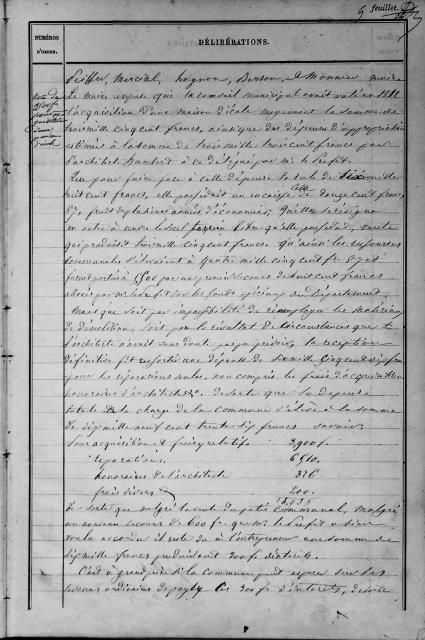 5 feuillet.
NUMÉROS D'ORDRE.
DÉLIBÉRATIONS.
Peiffer, Mercial, Hoignon, Berson, et Monnier maire
Le maire expose que le conseil municipal avait voté en
l'acquisition d'une maison d'école moyennant la somme de
trois mille cinq cent francs, ainsi que des dépenses d'appropriation
estimées à la somme de trois mille trois cent francs par
l'architecte Humbert à ce désigné par mr. le Préfet.
Que pour faire face à cette dépense totale de six mille
huit cent francs, elle possédait un encaisse de douze cent francs
fruit de plusieurs années d'économies; qu'elle se résigna
en outre à vendre le seul terrain libre qu'elle possédait, vente
qui produisit trois mille cinq cent francs. Qu'ainsi les ressources
communales s'élevaient à quatre mille cinq cent fr. et
furent portées à 5500 par un premier secours de huit cent francs
alloué par mr. le Préfet sur les fonds spéciaux du Département.
Mais que soit par impossibilité de réemployer les matériaux
de démolition, soit par le résultat de circonstances que
l'architecte n'avait sans doute pas pu prévoir, la réception
définitive fit ressortir une dépense de six mille cinq cent dix francs
pour les réparations seules, non compris les frais d'acquisition
honoraires d'architecte &c. de sorte que la dépense
totale à la charge de la commune s'élève à la somme
de dix mille neuf cent trente six francs savoir:
Pour acquisition et frais y relatifs 3,900 f.
réparations. 6510.
honoraires de l'architecte 326
frais divers 200.
10,936
De sorte que malgré la vente du pâtis communal, malgré
un nouveau secours de 600 fr. que mr. le Préfet a bien
voulu accorder il reste dû à l'entrepreneur une somme de
six mille francs produisant 300 fr. d'intérêts.
C'est à grand peine si la commune peut espérer sur les
revenus ordinaires de payer les 300 fr. d'intérêts, de sorte